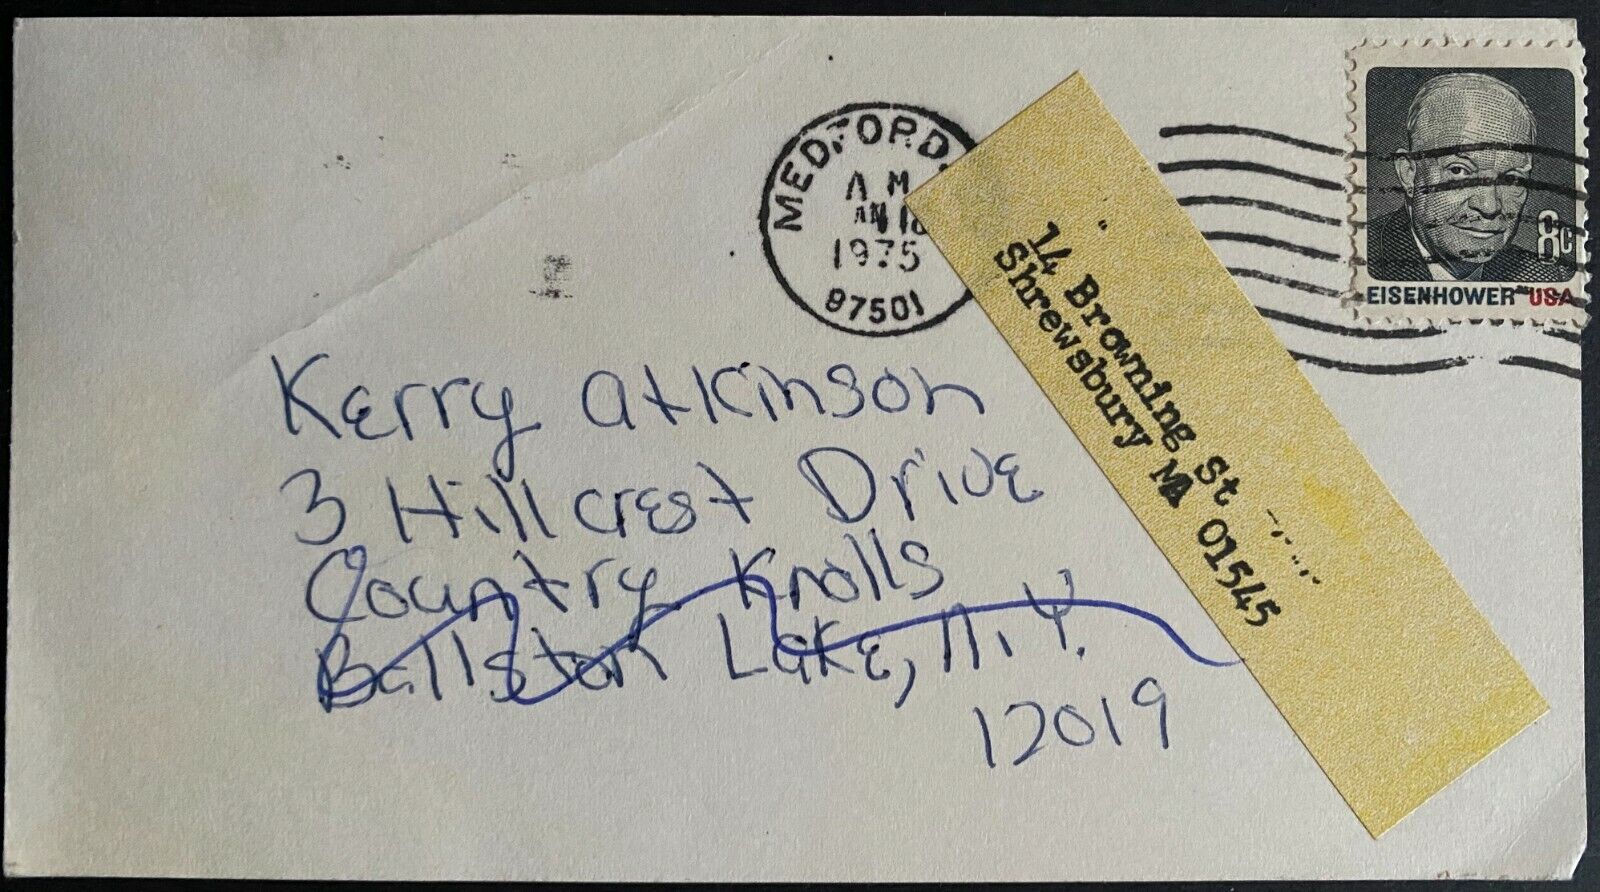 MEDFORD,
AM
1975
97501
8c
EISENHOWER USA
14 Browning St
Shrewsbury MA 01545
Kerry Atkinson
3 Hillcrest Drive
Country Knolls
Ballston Lake, N.Y.
12019